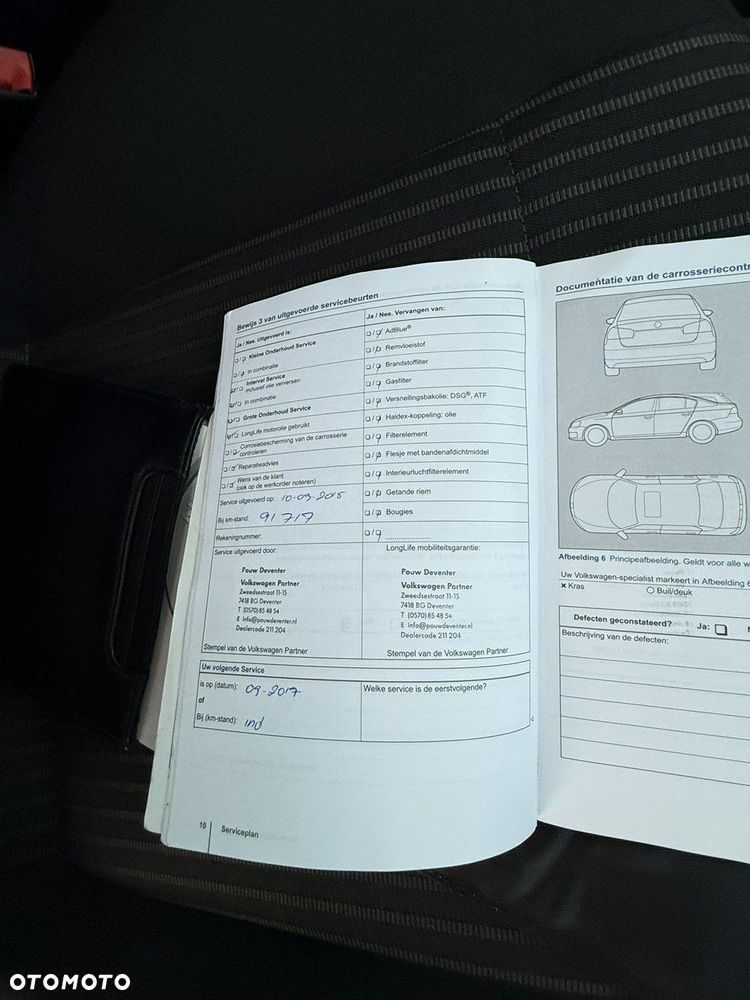 Bewijs 3 van uitgevoerde servicebeurten
Ja / Nee. Uitgevoerd is:
Kleine Onderhoud Service
In combinatie
Interval Service
inclusief olie verversen
In combinatie
Grote Onderhoud Service
LongLife motorolie gebruikt
Corrosiebescherming van de carrosserie
controleren
Reparatieadvies
Wens van de klant
(ook op de werkorder noteren)
Service uitgevoerd op: 10-09-2015
Bij km-stand: 91 717
Rekeningnummer:
Service uitgevoerd door:
Pouw Deventer
Volkswagen Partner
Zweedsestraat 11-15
7418 BG Deventer
T (0570) 85 48 54
E info@pouwdeventer.nl
Dealercode 211 204
Stempel van de Volkswagen Partner
Ja / Nee. Vervangen van:
AdBlue®
Remvloeistof
Brandstoffilter
Gasfilter
Versnellingsbakolie: DSG®, ATF
Haldex-koppeling: olie
Filterelement
Flesje met bandenafdichtmiddel
Interieurluchtfilterelement
Getande riem
Bougies
LongLife mobiliteitsgarantie:
Pouw Deventer
Volkswagen Partner
Zweedsestraat 11-15
7418 BG Deventer
T (0570) 85 48 54
E info@pouwdeventer.nl
Dealercode 211 204
Stempel van de Volkswagen Partner
Uw volgende Service
is op (datum): 09-2017
of
Bij (km-stand): ind
Welke service is de eerstvolgende?
10
Serviceplan
Documentatie van de carrosseriecontr
Afbeelding 6 Principeafbeelding. Geldt voor alle
Uw Volkswagen-specialist markeert in Afbeelding 6
× Kras
Buil/deuk
Defecten geconstateerd?
Ja:
Beschrijving van de defecten:
OTOMOTO